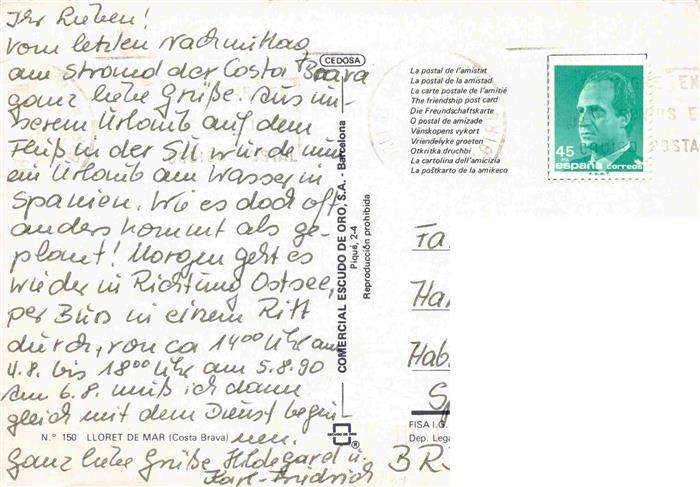 Ihr Lieben!
Vom letzten Nachmittag
am Strand der Costa Brava
ganz liebe Grüße. Aus un-
serem Urlaub auf dem
Fluß in der SU wurde nun
ein Urlaub am Wasser in
Spanien. Wie es doch oft
anders kommt als ge-
plant! Morgen geht es
wieder in Richtung Ostsee,
per Bus in einem Ritt
durch, von ca 14⁰⁰ Uhr am
4.8. bis 18⁰⁰ Uhr am 5.8.90
Am 6.8. muß ich dann
gleich mit dem Dienst begin-
nen.
Ganz liebe Grüße Hildegard u.
Karl-Friedrich
N.º 150 LLORET DE MAR (Costa Brava)
CEDOSA
COMERCIAL ESCUDO DE ORO, S.A. - Barcelona
Piqué, 2-4
Reproducción prohibida
ESCUDO DE ORO
®
La postal de l'amistat
La postal de la amistad
La carte postale de l'amitié
The friendship post card
Die Freundschaftskarte
O postal de amizade
Vänskapens vykort
Vriendelyke groeten
Otkritka druchbi
La cartolina dell'amicizia
La poŝtkarto de la amikeco
45
PTA
españa correos
F.N.M.T.
Fa
Ha
Hab
Sp
FISA I.G.
Dep. Lega
BR